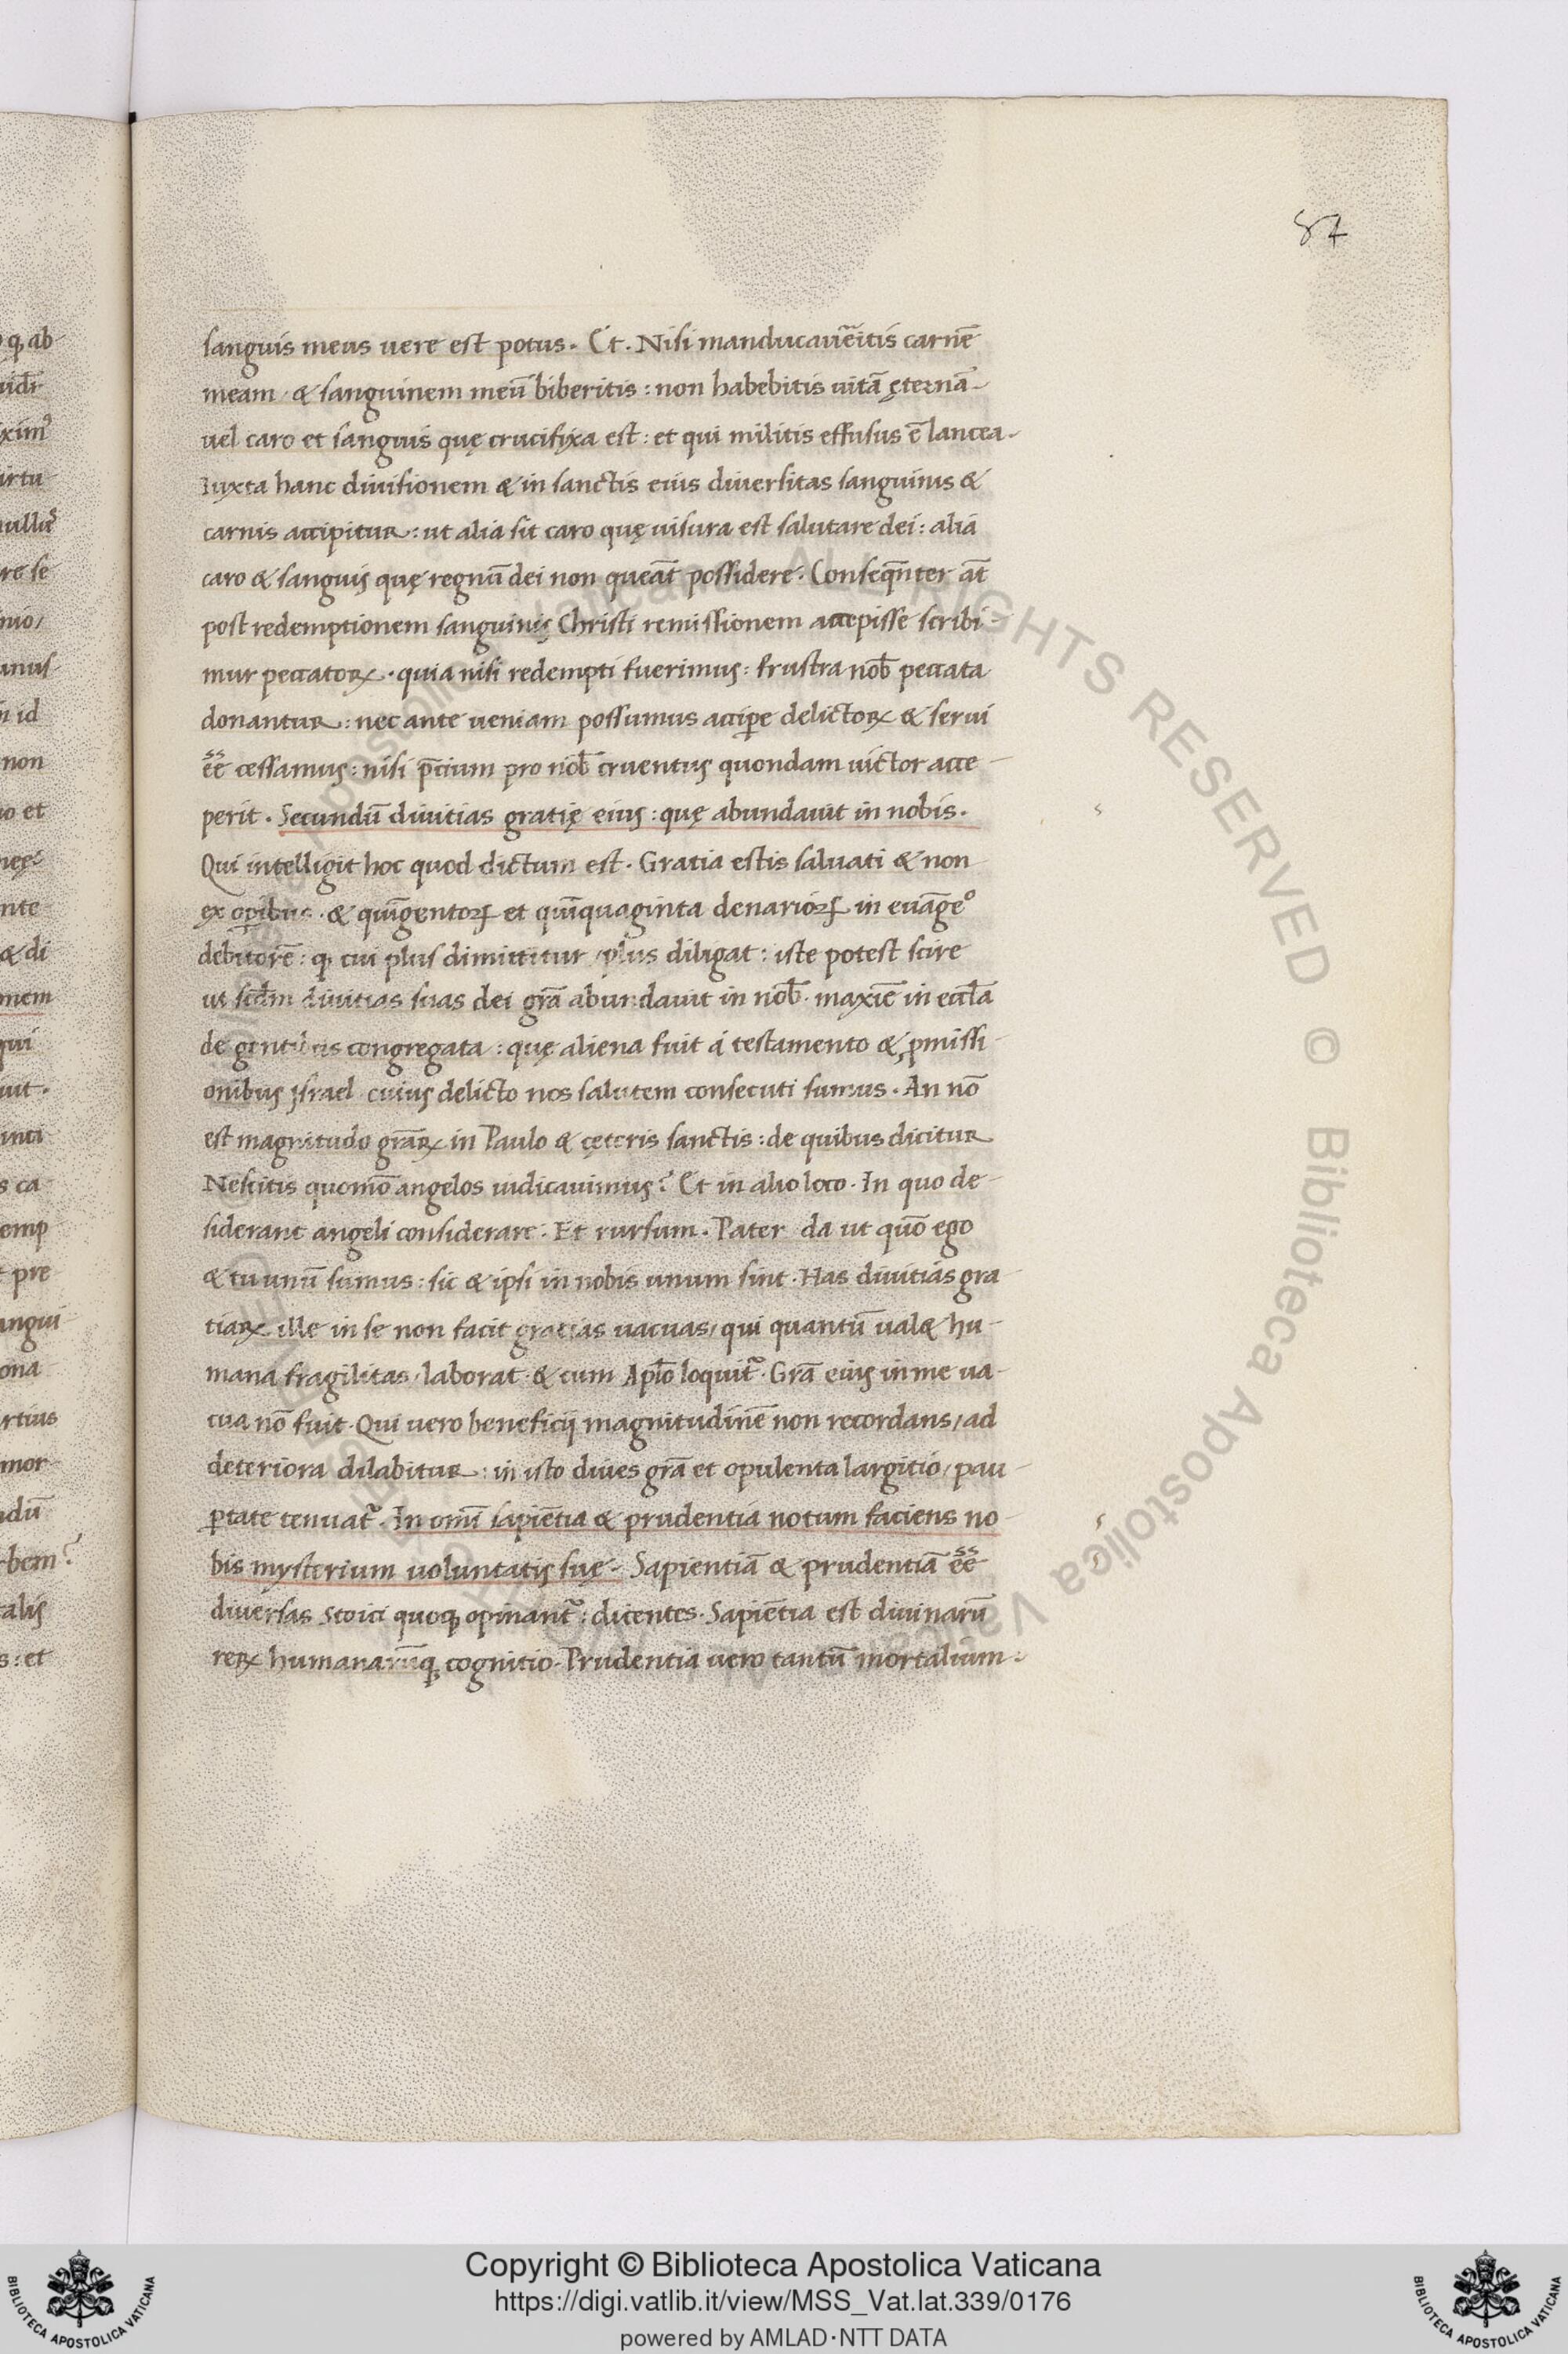 87
sanguis meus uere est potus. Et. Nisi manducaue͂ritis carnē
meam & sanguinem meū biberitis: non habebitis uitā ęternā
uel caro et sanguis quę crucifixa est: et qui militis effusus ē lancea.
Iuxta hanc diuisionem & in sanctis eius diuersitas sanguinis &
carnis accipitur: ut alia sit caro quę uisura est salutare dei: alia
caro & sanguis quę regnū dei non queāt possidere. Conseq̄nter āt
post redemptionem sanguinis Christi remissionem accepisse scribi-
mur peccatoꝝ. quia nisi redempti fuerimus: frustra nob̄ peccata
donantur: nec ante ueniam possumus accip̄e delictoꝝ & serui
ēē cessamus: nisi p̄cium pro nob̄ cruentus quondam uictor acce-
perit. Secundū diuitias gratię eius: quę abundauit in nobis.
Qui intelligit hoc quod dictum est. Gratia estis saluati & non
ex operibus. & quīgentoꝝ et quīquaginta denarioꝝ in euāgeº
debitorē: ꝙ cui plus dimittitur / plus diligat: iste potest scire
ut scd̄m diuitias suas dei grā abundauit in nob̄. maxīe in eccl̄a
de gentibus congregata: quę aliena fuit á testamento & ꝓmissi-
onibus Israel cuius delicto nos salutem consecuti sumus. An nō
est magnitudo grāꝝ in Paulo & cęteris sanctis: de quibus dicitur
Nescitis quomō angelos iudicauimus? Et in alio loco. In quo de-
siderant angeli considerare. Et rursum. Pater da ut quō ego
& tu unū sumus: sic & ipsi in nobis unum sint. Has diuitias gra
tiaꝝ ille in se non facit gratias uacuas / qui quantū ual& hu-
mana fragilitas / laborat. & cum Apl̄o loquit᷑. Grā eius in me ua-
cua nō fuit. Qui uero beneficij magnitudinē non recordans / ad
deteriora dilabitur: in isto diues grā et opulenta largitio / pau-
ꝑtate tenuat᷑. In omī sapiētia & prudentia notum faciens no-
bis mysterium uoluntatis suę. Sapientiā & prudentiā ēē
diuersas Stoici quoqꝫ opinant᷑: dicentes. Sapiētia est diuinarū
reꝝ humanarūqꝫ cognitio. Prudentia uero tantū mortalium.
q ab
uidr̄
xim᷒
irtu
ullu᷒
re se
nio/
anus
n id
non
o et
nęę:
nte
& di
nem
qui
uit.
inti
s ca
emp
t pre
angui
ona
rtius
mor
ndū
rbem?
talis
s: et
Biblioteca Apostolica Vaticana ALL RIGHTS RESERVED © Biblioteca Apostolica Vaticana
Copyright © Biblioteca Apostolica Vaticana
https://digi.vatlib.it/view/MSS_Vat.lat.339/0176
powered by AMLAD·NTT DATA
BIBLIOTECA APOSTOLICA VATICANA
BIBLIOTECA APOSTOLICA VATICANA